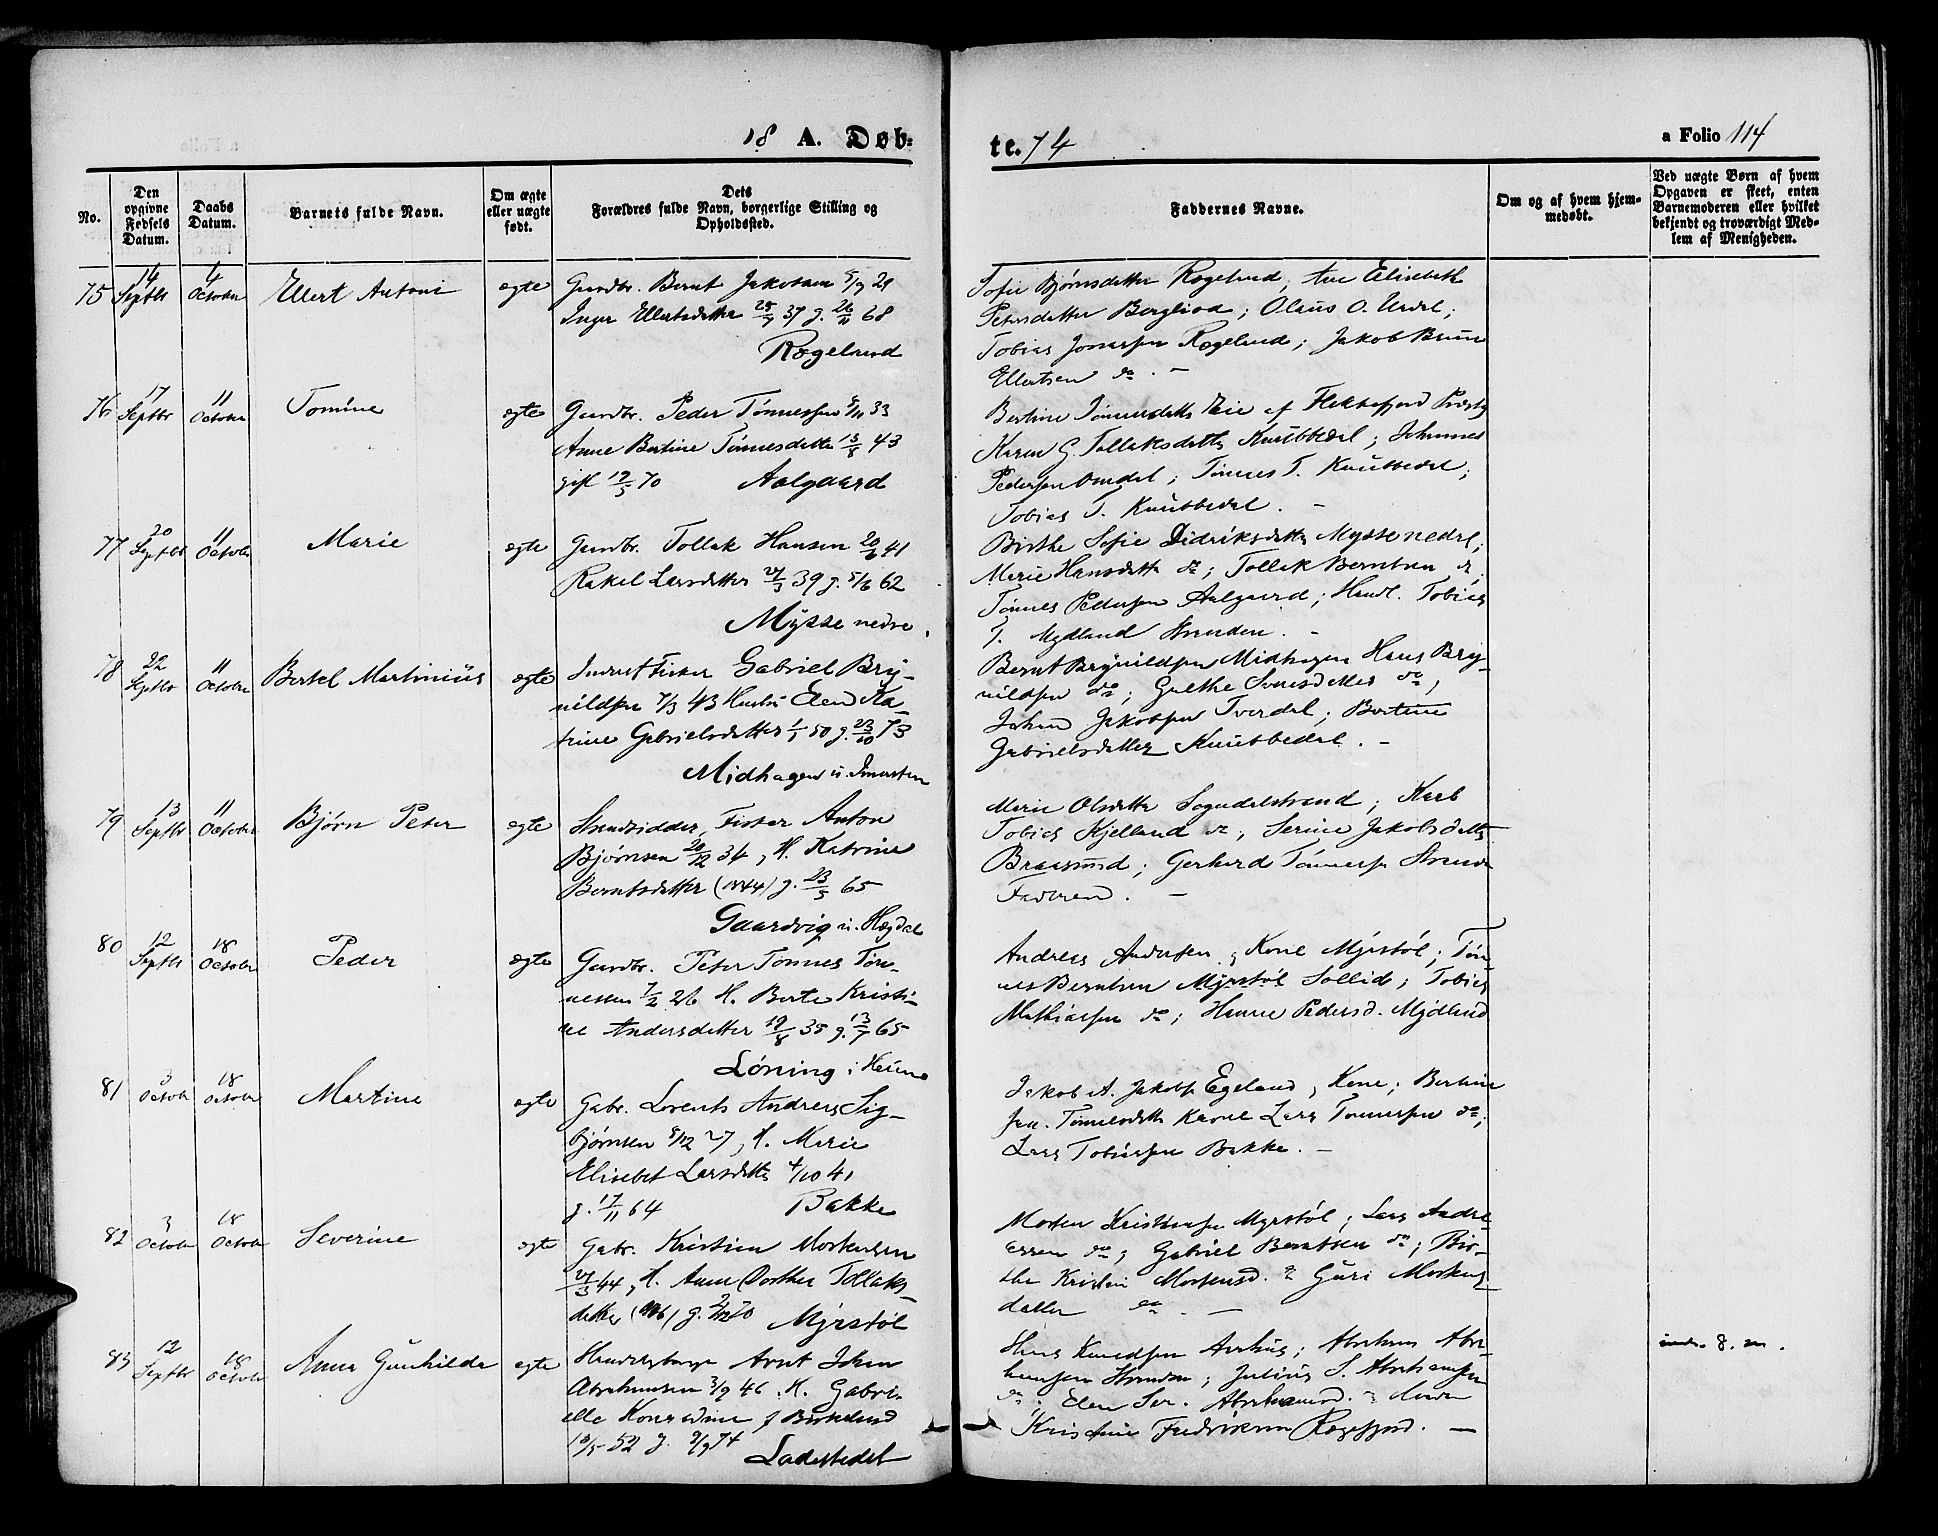 18 A. Døb:
te. 74
a Folio 114
No.
Den opgivne Fødsels Datum.
Daabs Datum.
Barnets fulde Navn.
Om ægte eller uægte født.
Dets Forældres fulde Navn, borgerlige Stilling og Opholdssted.
Faddernes Navne.
Om og af hvem hjemmedøbt.
Ved uægte Børn af hvem Opgaven er skeet, enten Barnemoderen eller hvilket bekjendt og troværdigt Medlem af Menigheden.
75 14 Septbr 4 October Ellert Antoni ægte Gaardbr. Bernt Jakobsen 8/9 29
Inger Ellertsdatter 25/7 37 g. 26/11 68
Rægeland
Sofie Bjørnsdatter Rægeland, Ane Elisabeth
Petersdatter Bergliod; Olaus O. Urdal;
Tobias Jonassen Rægeland; Jakob Bruun
Ellertsen do. —
76 17 Septbr 11 October Tomine ægte Gaardbr. Peder Tönnessen 8/11 33
Anne Bertine Tönnesdatter 13/8 43
gift 19/5 70 Aalgaard
Bertine Tönnesdatter Eie af Flekkefjord Præstg
Karen G. Tollaksdatter Knubbedal; Johannes
Pedersen Omdal; Tönnes T. Knubbedal;
Tobias T. Knubbedal. —
77 20 Septbr 11 October Marie ægte Gaardbr. Tollak Hansen 20/6 41
Rakel Larsdatter 27/3 39 g. 5/6 62
Mysse nedre.
Birthe Sofie Didriksdatter Myssenedre;
Marie Hansdatter do; Tollak Berntsen do,
Tönnes Pedersen Aalgaard; Handl. Tobias
T. Mydland Stranden. —
78 22 Septbr 11 October Bertel Martinius ægte Inderst Fisker Gabriel Bry-
nildsen 7/3 43 Hustru Elen Ka-
trine Gabrielsdatter 1/1 50 g. 23/10 73
Midhagen u.
Bernt Brynildsen Midhagen Hans Bry-
nildsen do; Grethe Svensdatter do,
Johan Jakobsen Tverdal; Bertine
Gabrielsdatter Knubbedal. —
79 13 Septbr 11 October Bjørn Peter ægte Strandsidder, Fisker Anton
Bjørnsen 20/12 34, H. Katrine
Berntsdatter (1844) g. 23/5 65
Gaardvig u. Hægdal
Marie Olsdatter Sogndalstrand; Karl
Tobias Kjelland do, Serine Jakobsdatter
Braasund; Gerhard Tönnesen Strand
Faderen. —
80 12 Septbr 18 October Peder ægte Gaardbr. Peter Tönnes Tön-
nessen 7/2 26 H. Berte Kristi-
ne Andersdatter 19/8 35 g. 13/7 65
Löning i Heiene
Andreas Andersen, Kone Myrstøl; Tön-
nes Berntsen Myrstøl Sollid; Tobias
Mathiassen do; Hanne Pedersd. Mydland
81 3 October 18 October Martine ægte Gabr. Lorents Andreas Sig-
bjørnsen 8/12 27, H. Marie
Elisabet Larsdatter 4/10 41
g. 17/11 64 Bakke
Jakob A. Jakobs. Egeland, Kone; Bertine
Tönnesdatter Lars Tönnessen do;
Lars Tobiassen Bakke. —
82 3 October 18 October Severine ægte Gabr. Kristian Mortensen
27/3 44, H. Anne Dorthea Tollaks
datter g. 2/12 70 Myrstøl
Morten Kristensen Myrstøl; Lars Andre-
assen do; Gabriel Berntsen do; Bir-
the Kristine Mortensd. do Guri Mortens
datter do. —
83 12 Septbr 18 October Anna Gunhilda ægte Handelsborger Arnt Johan
Abrahamsen 3/9 46. H. Gabri-
elle Konradine f Birkeland
10/5 52 g. 9/9 74
Ladestedet
Hans Knudsen Aarhus; Abraham Abra-
hamsen Stranden; Julius S. Abrahamsen
do. Elen Ser. Abrahamsd.
Kristine Fredriksen Rægefjord. —
8. m.